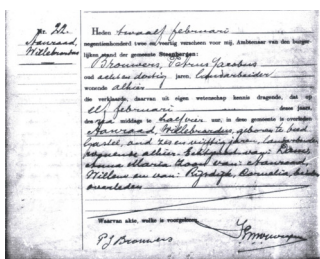 Nr 22.
Aanraad,
Willebrordus
Heden twaalf februari
negentienhonderd twee en veertig verscheen voor mij, Ambtenaar van den burger-
lijken stand der gemeente Steenbergen:
Brouwers, Petrus Jacobus
oud acht en dertig jaren, landarbeider
wonende alhier
die verklaarde, daarvan uit eigen wetenschap kennis dragende, dat op
elf februari dezes jaars,
des na middags te half vier uur, in deze gemeente is overleden
Aanraad, Willebrordus, geboren te
Gastel, oud zes en vijftig jaren, landarbeider
wonende alhier. Echtgenoot van:
Anna Maria zoon van: Aanraad,
Willem en van: Rijsdijk, Cornelia, beiden
overleden.
Waarvan akte, welke is voorgelezen.
PJ Brouwers